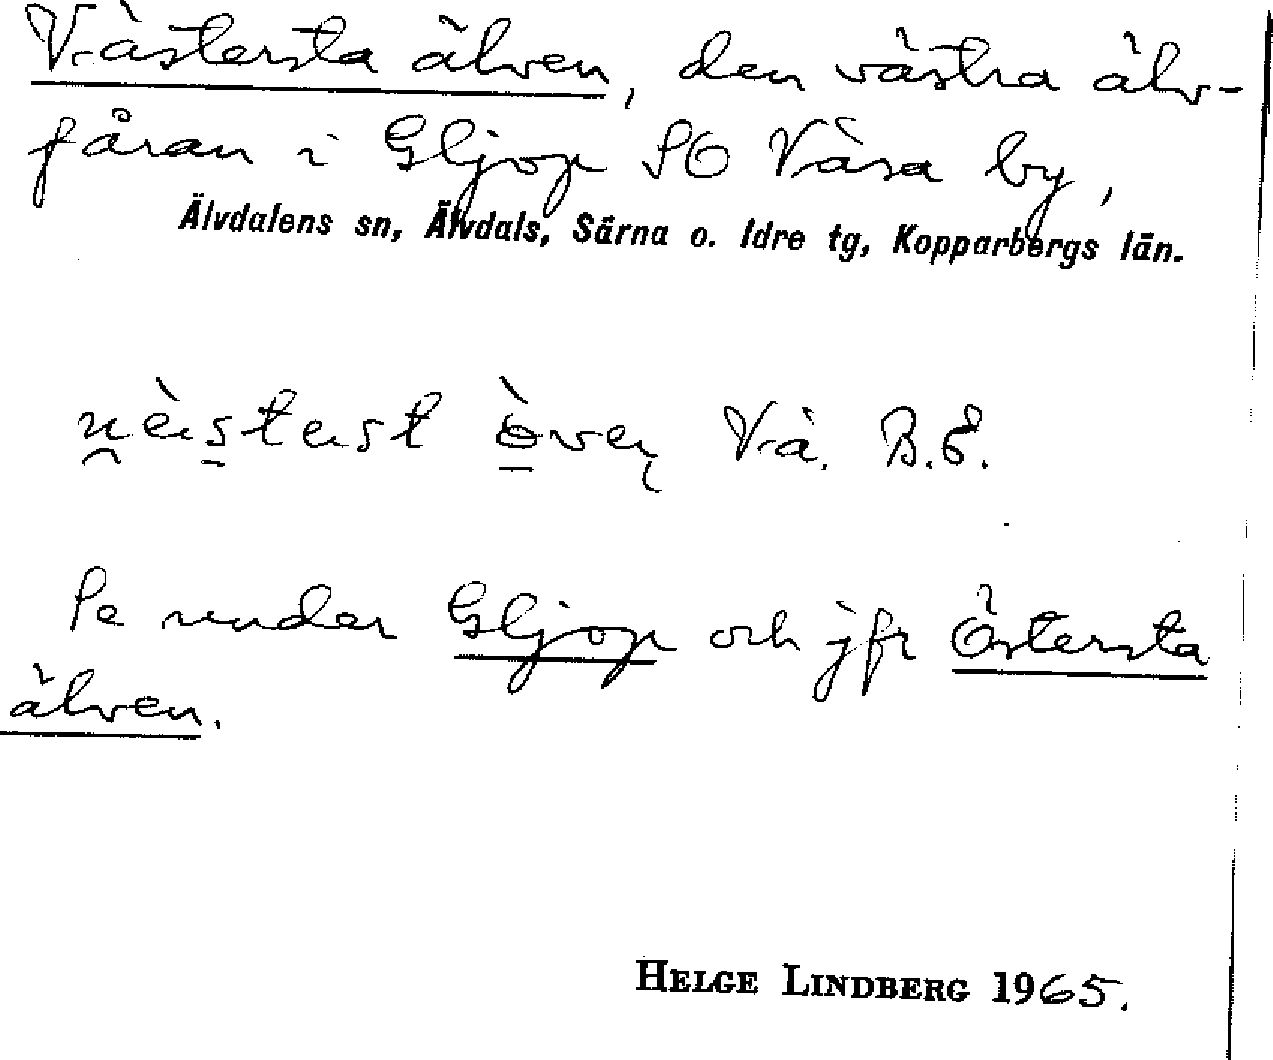 Västersta älven, den västra älv-
fåran i Gljop SO Våsa by,
Älvdalens sn, Älvdals, Särna o. Idre tg, Kopparbergs län.
Vå. B.E.
Se under Gljop och jfr Östersta
älven.
HELGE LINDBERG 1965.